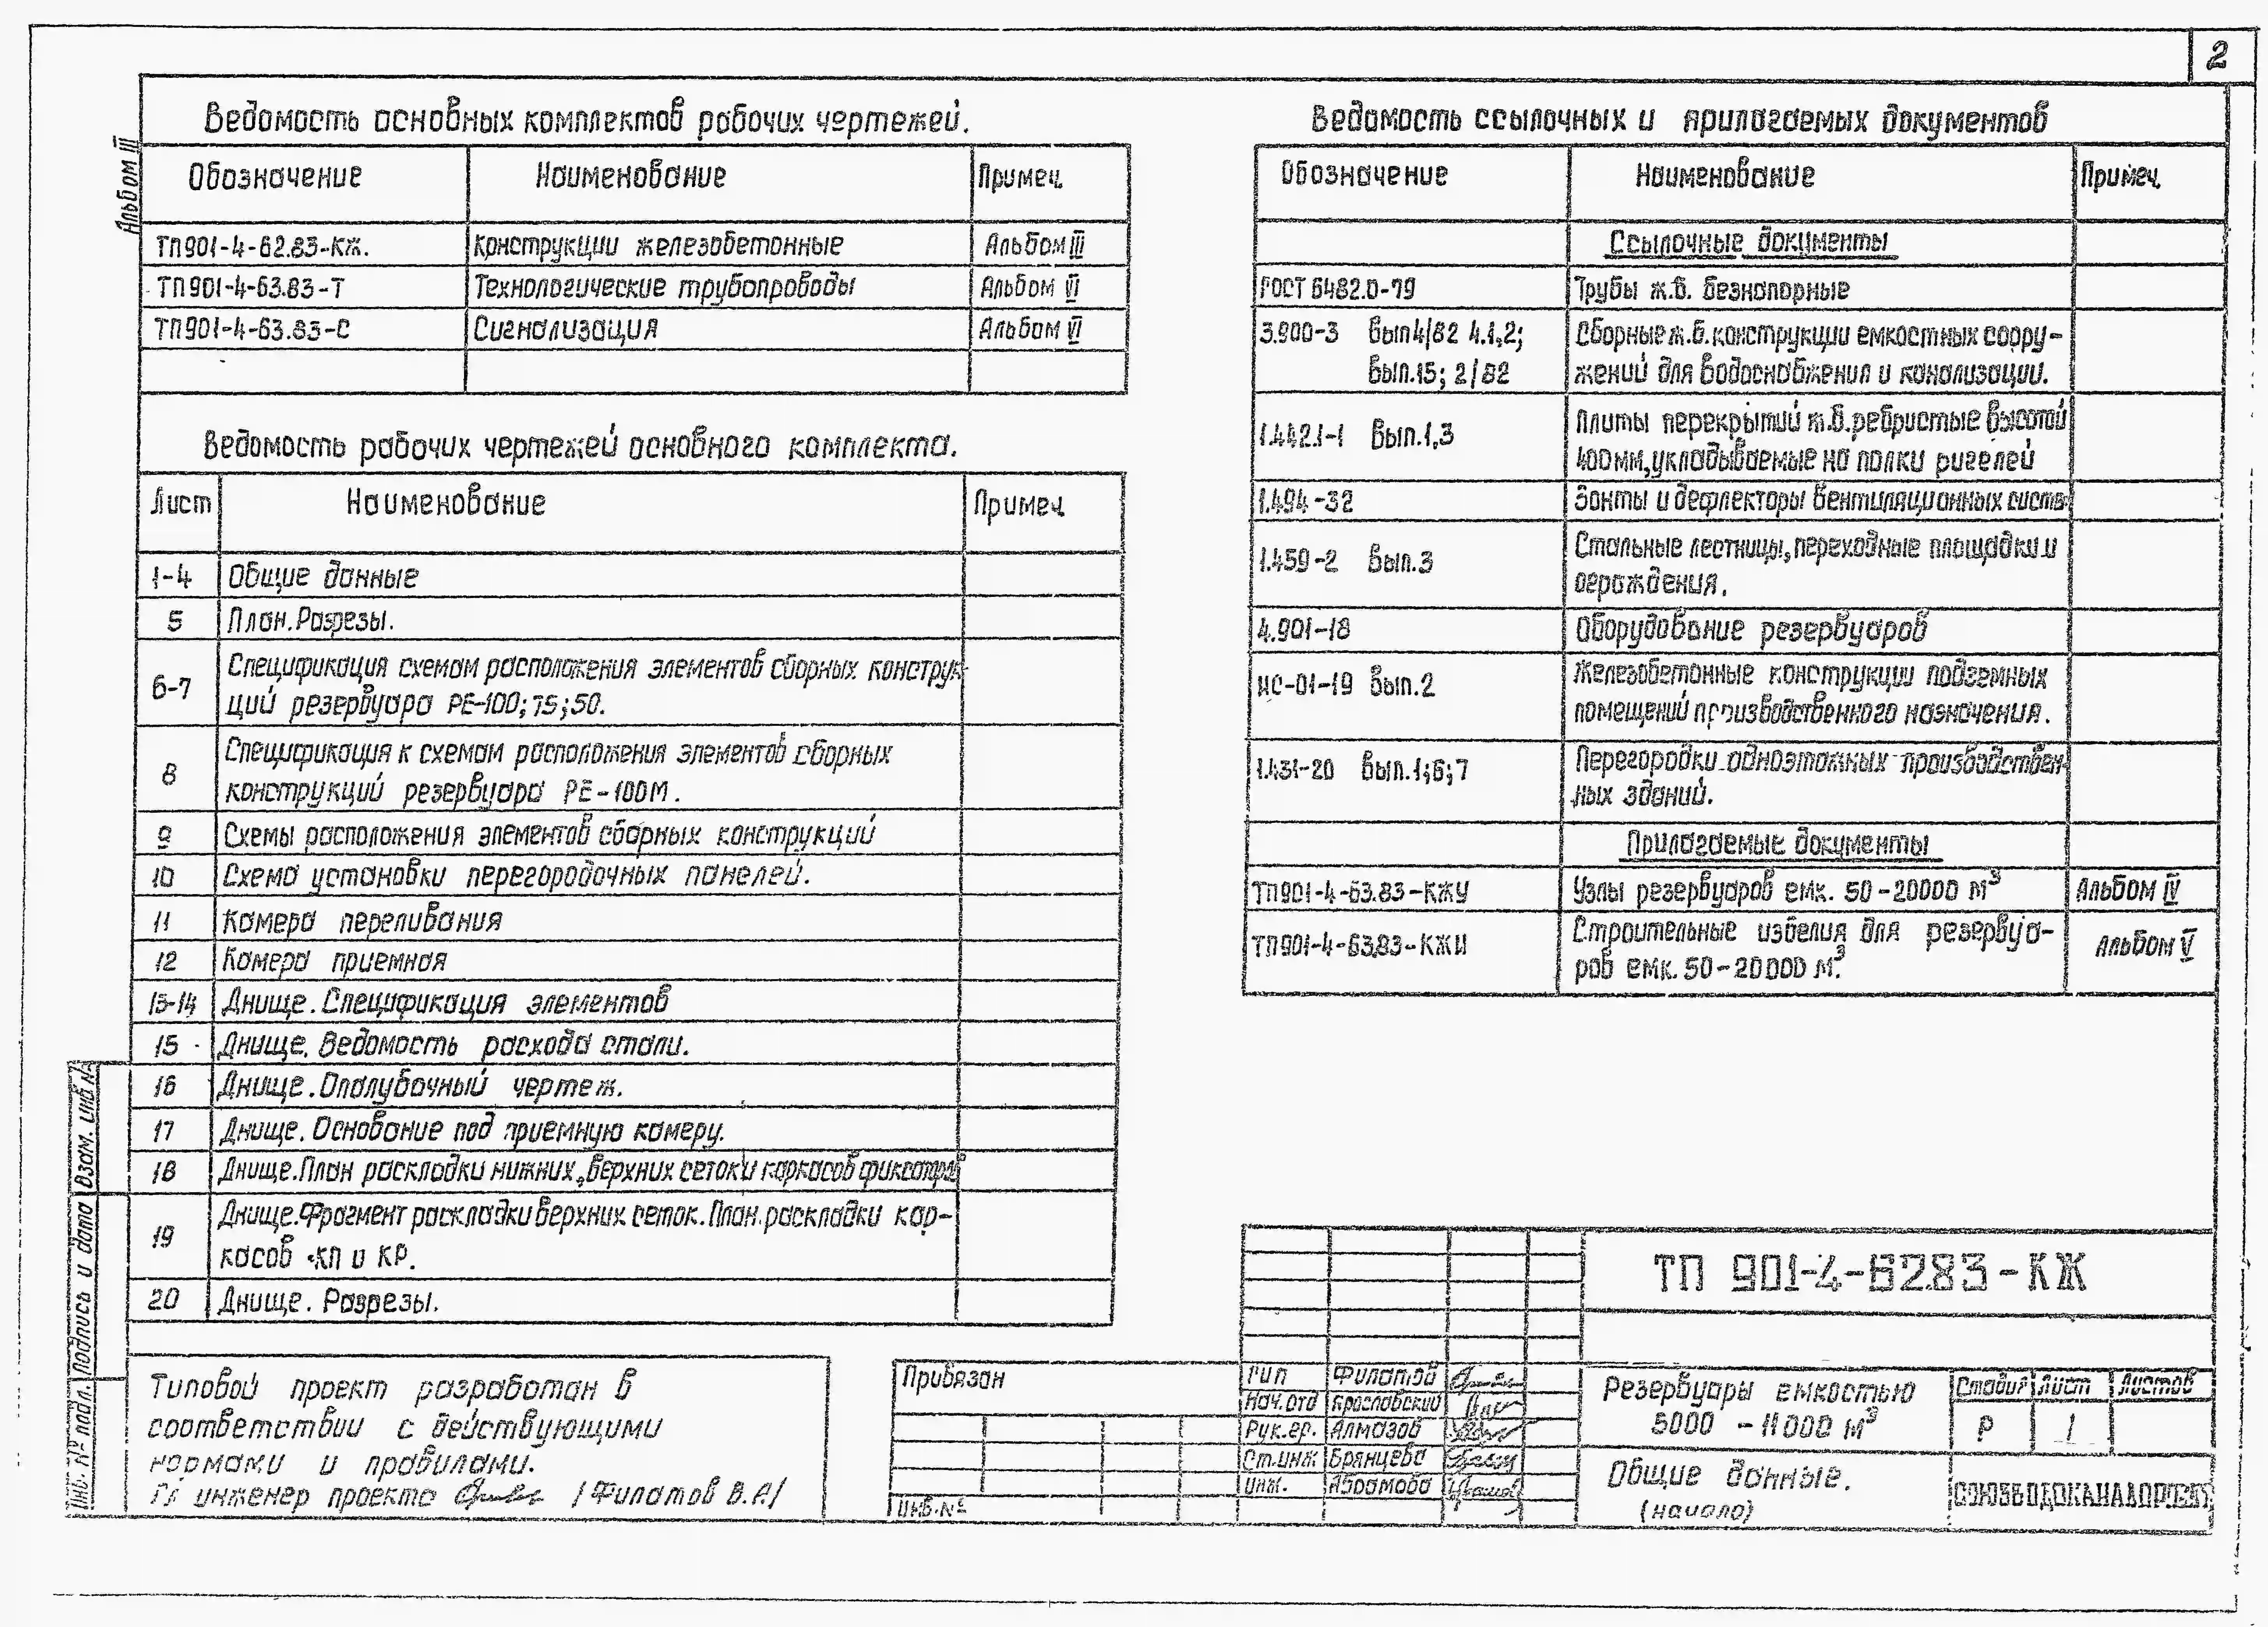 2
Альбом III
Ведомость основных комплектов рабочих чертежей.
Обозначение Наименование Примеч.
ТП901-4-62.83-КЖ. Конструкции железобетонные Альбом III
ТП901-4-63.83-Т Технологические трубопроводы Альбом VI
ТП901-4-63.83-С Сигнализация Альбом VI
Ведомость рабочих чертежей основного комплекта.
Лист Наименование Примеч.
1-4 Общие данные
5 План. Разрезы.
6-7 Спецификация схемам расположения элементов сборных конструк
ций резервуара РЕ-100; 75; 50.
8 Спецификация к схемам расположения элементов сборных
конструкций резервуара РЕ-100М.
9 Схемы расположения элементов сборных конструкций
10 Схема установки перегородочных панелей.
11 Камера переливания
12 Камера приемная
13-14 Днище. Спецификация элементов
15 Днище. Ведомость расхода стали.
16 Днище. Опалубочный чертеж.
17 Днище. Основание под приемную камеру.
18 Днище. План раскладки нижних, верхних сеток и каркасов фиксаторов
19 Днище. Фрагмент раскладки верхних сеток. План раскладки кар-
касов КП и КР.
20 Днище. Разрезы.
Ведомость ссылочных и прилагаемых документов
Обозначение Наименование Примеч.
Ссылочные документы
ГОСТ 6482.0-79 Трубы ж.б. безнапорные
3.900-3 вып 4/82 ч.1,2; Сборные ж.б. конструкции емкостных соору-
вып.15; 2/82 жений для водоснабжения и канализации.
1.442.1-1 вып.1,3 Плиты перекрытий ж.б. ребристые высотой
400мм, укладываемые на полки ригелей
1.494-32 Зонты и дефлекторы вентиляционных систем
1.459-2 вып.3 Стальные лестницы, переходные площадки и
ограждения.
4.901-18 Оборудование резервуаров
ИС-01-19 вып.2 Железобетонные конструкции подземных
помещений производственного назначения.
1.431-20 вып.1;6;7 Перегородки одноэтажных производствен-
ных зданий.
Прилагаемые документы
ТП901-4-63.83-КЖУ Узлы резервуаров емк. 50-20000 м³ Альбом IV
ТП901-4-63.83-КЖИ Строительные изделия для резервуа-
ров емк. 50-20000 м³. Альбом V
Взам. инв №
Подпись и дата
Инв. № подл.
Типовой проект разработан в
соответствии с действующими
нормами и правилами.
Гл инженер проекта /Филатов В.А/
Привязан
Инв. №
ТП 901-4-62.83-КЖ
ГИП Филатов
Нач. отд Ярославский
Рук. гр. Алмазов
Ст. инж Брянцева
Инж. Абрамова
Резервуары емкостью
5000 - 11000 м³
Стадия Лист Листов
Р 1
Общие данные.
(начало)
СОЮЗВОДОКАНАЛПРОЕКТ